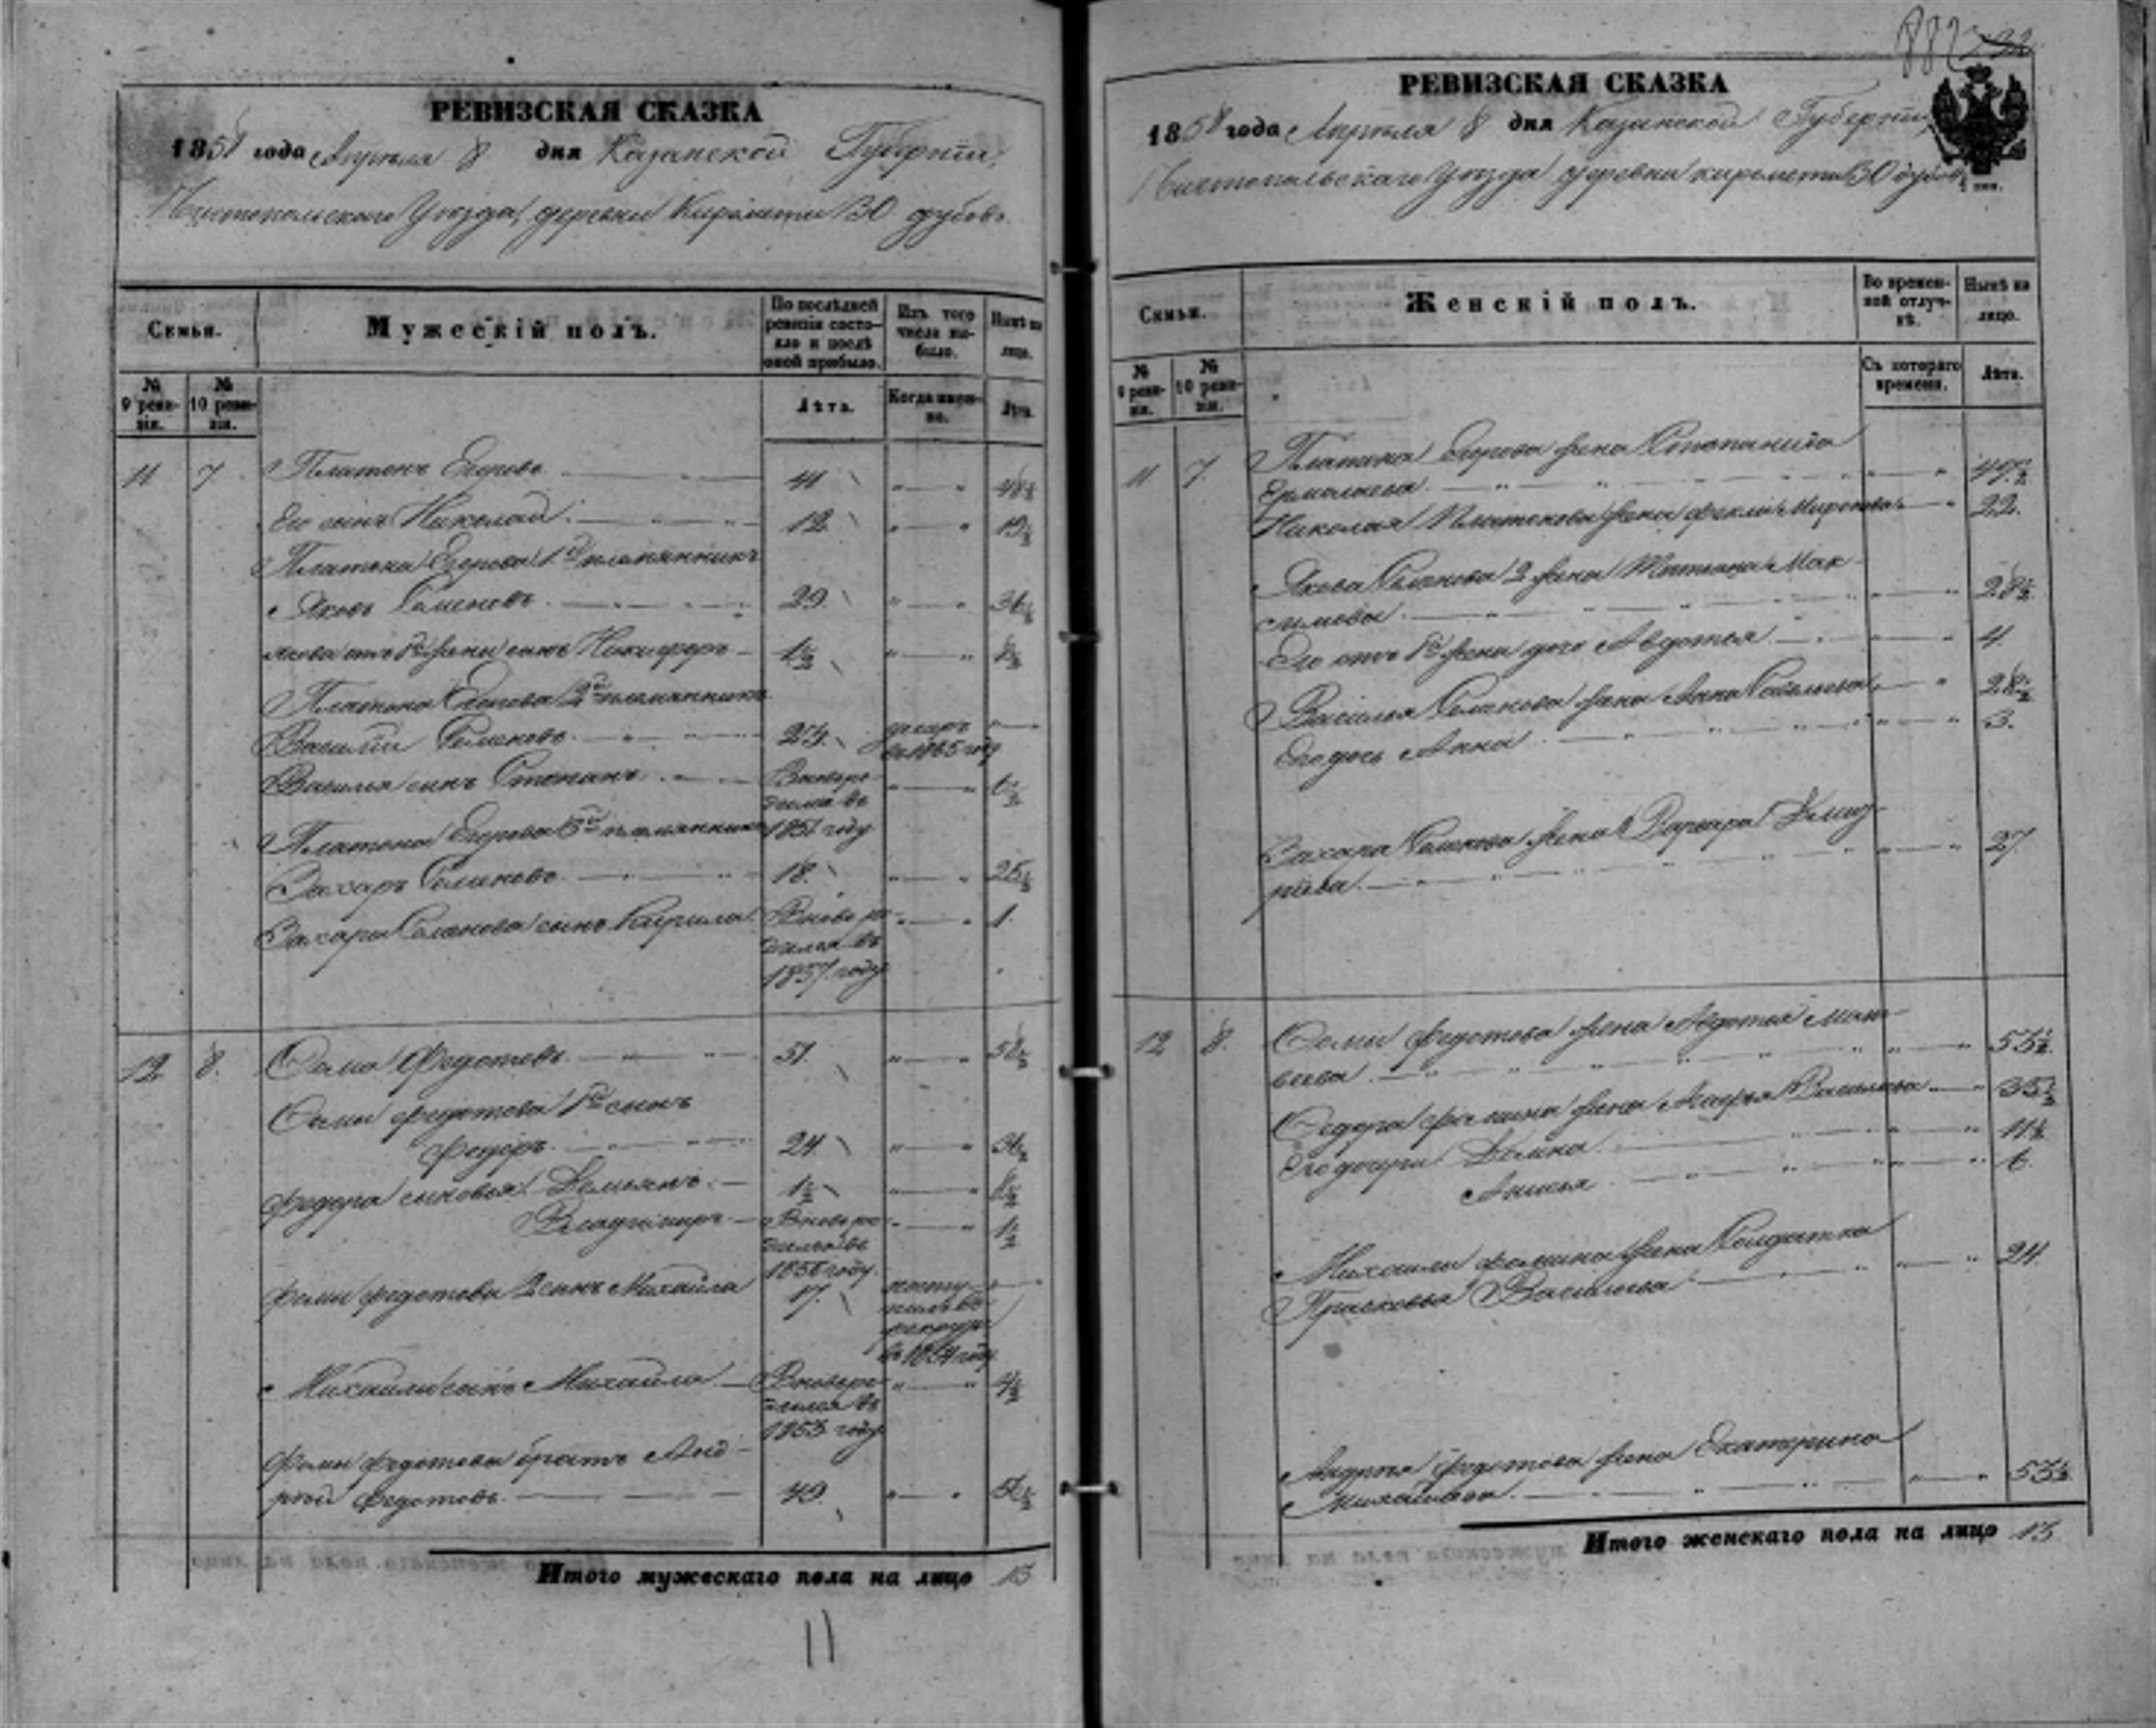 882
РЕВИЗСКАЯ СКАЗКА
1858 года Апреля 8 дня Казанской Губернiи,
Чистопольскаго Уезда, деревни Киремети 30 дубовъ
Семьи.
Мужескiй полъ.
По послѣдней ревизiи состояло и послѣ оной прибыло.
Изъ того числа выбыло.
Нынѣ на лицо.
№ 9 ревизiи.
№ 10 ревизiи.
Лѣта.
Когда именно.
Лѣта.
11 7 Платонъ Егоровъ 41 " " 48½
Его сынъ Николай 12 " " 19½
Платона Егорова 1й племянникъ
Яковъ Семеновъ 29 " " 36½
Якова отъ 1й жены сынъ Никифоръ 1½ " " 8½
Платона Егорова 2й племянникъ
Василiй Семеновъ 24 умеръ въ 1855 году "
Василья сынъ Степанъ Вновь родился въ 1851 году " " 6½
Платона Егорова 3й племянникъ
Захаръ Семеновъ 18 " " 25½
Захара Семенова сынъ Кирила Вновь родился въ 1857 году " " 1
12 8 Фома Федотовъ 51 " " 58½
Фомы Федотова 1й сынъ
Федоръ 24 " " 31½
Федора сыновья Демьянъ 1½ " " 8½
Владимиръ Вновь родился въ 1856 году " " 1½
Фомы Федотова 2 сынъ Михайла 17 поступилъ въ рекруты въ 1854 году
Михайлы сынъ Михайла Вновь родился въ 1853 году " " 4½
Фомы Федотова братъ Андрей Федотовъ 49 " " 56½
Итого мужескаго пола на лицо 13
11
РЕВИЗСКАЯ СКАЗКА
1858 года Апреля 8 дня Казанской Губернiи,
Чистопольскаго Уезда деревни киремети 30 дубовъ
Семьи.
Женскiй полъ.
Во временной отлучкѣ.
Нынѣ на лицо.
№ 9 ревизiи.
№ 10 ревизiи.
Съ котораго времени.
Лѣта.
11 7. Платона Егорова жена Степанида
Ермолаева " " 49½
Николая Платонова жена Фекла Миронова " 22.
Якова Семенова 2 жена Татьяна Максимова " " 28½
Его отъ 1й жены дочь Авдотья " " 4
Василья Семенова жена Анна Савельева " " 28½
Его дочь Анна " " 3.
Захара Семенова жена Варвара Дмитрiева " " 27
12 8. Фомы Федотова жена Авдотья Матвеева " " 55½
Федора Фомина жена Марья Васильева " " 35½
Его дочери Домна " " 11½
Анисья " " 6.
Михайлы Фомина жена Солдатка
Прасковья Васильева " " 24
Андрея Федотова жена Екатерина
Михайлова " " 53½
Итого женскаго пола на лицо 13